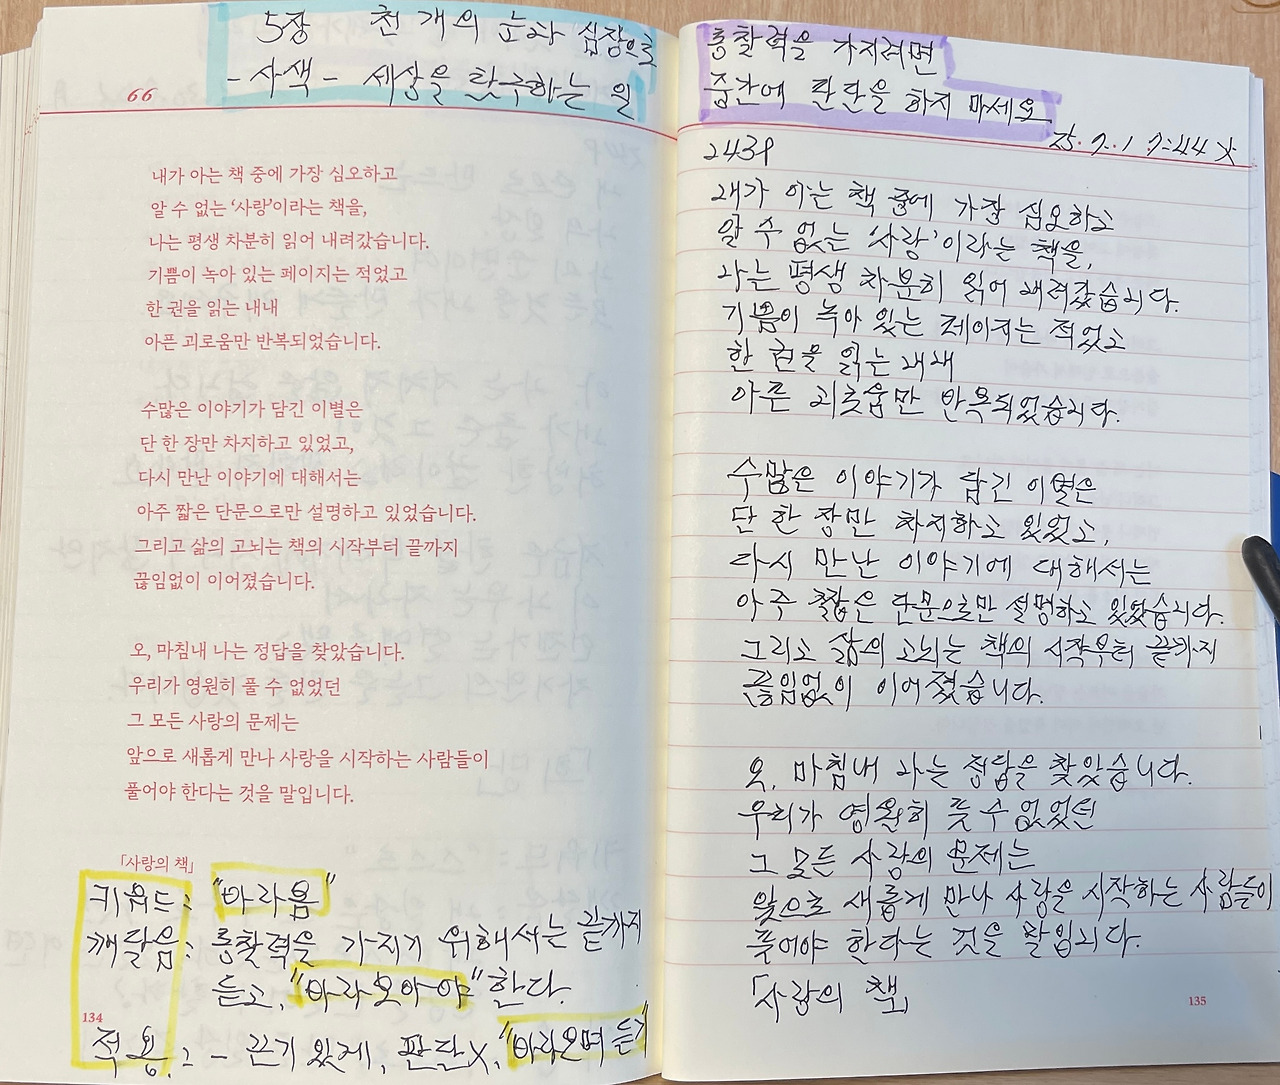 5장 천 개의 눈과 심장으로
- 사색 - 세상을 탐구하는 일
66
내가 아는 책 중에 가장 심오하고
알 수 없는 ‘사랑’이라는 책을,
나는 평생 차분히 읽어 내려갔습니다.
기쁨이 녹아 있는 페이지는 적었고
한 권을 읽는 내내
아픈 괴로움만 반복되었습니다.
수많은 이야기가 담긴 이별은
단 한 장만 차지하고 있었고,
다시 만난 이야기에 대해서는
아주 짧은 단문으로만 설명하고 있었습니다.
그리고 삶의 고뇌는 책의 시작부터 끝까지
끊임없이 이어졌습니다.
오, 마침내 나는 정답을 찾았습니다.
우리가 영원히 풀 수 없었던
그 모든 사랑의 문제는
앞으로 새롭게 만나 사랑을 시작하는 사람들이
풀어야 한다는 것을 말입니다.
「사랑의 책」
키워드: "바라봄"
깨달음: 통찰력을 가지기 위해서는 끝까지
듣고, "바라보아야" 한다.
134
적용: - 끈기 있게, 판단X, "바라보며 듣기
통찰력을 가지려면
중간에 판단을 하지 마세요
25. 7. 1 7:44 X
243P
내가 아는 책 중에 가장 심오하고
알 수 없는 '사랑'이라는 책을,
나는 평생 차분히 읽어 내려갔습니다.
기쁨이 녹아 있는 페이지는 적었고
한 권을 읽는 내내
아픈 괴로움만 반복되었습니다.
수많은 이야기가 담긴 이별은
단 한 장만 차지하고 있었고,
다시 만난 이야기에 대해서는
아주 짧은 단문으로만 설명하고 있었습니다.
그리고 삶의 고뇌는 책의 시작부터 끝까지
끊임없이 이어졌습니다.
오, 마침내 나는 정답을 찾았습니다.
우리가 영원히 풀 수 없었던
그 모든 사랑의 문제는
앞으로 새롭게 만나 사랑을 시작하는 사람들이
풀어야 한다는 것을 말입니다.
「사랑의 책」
135